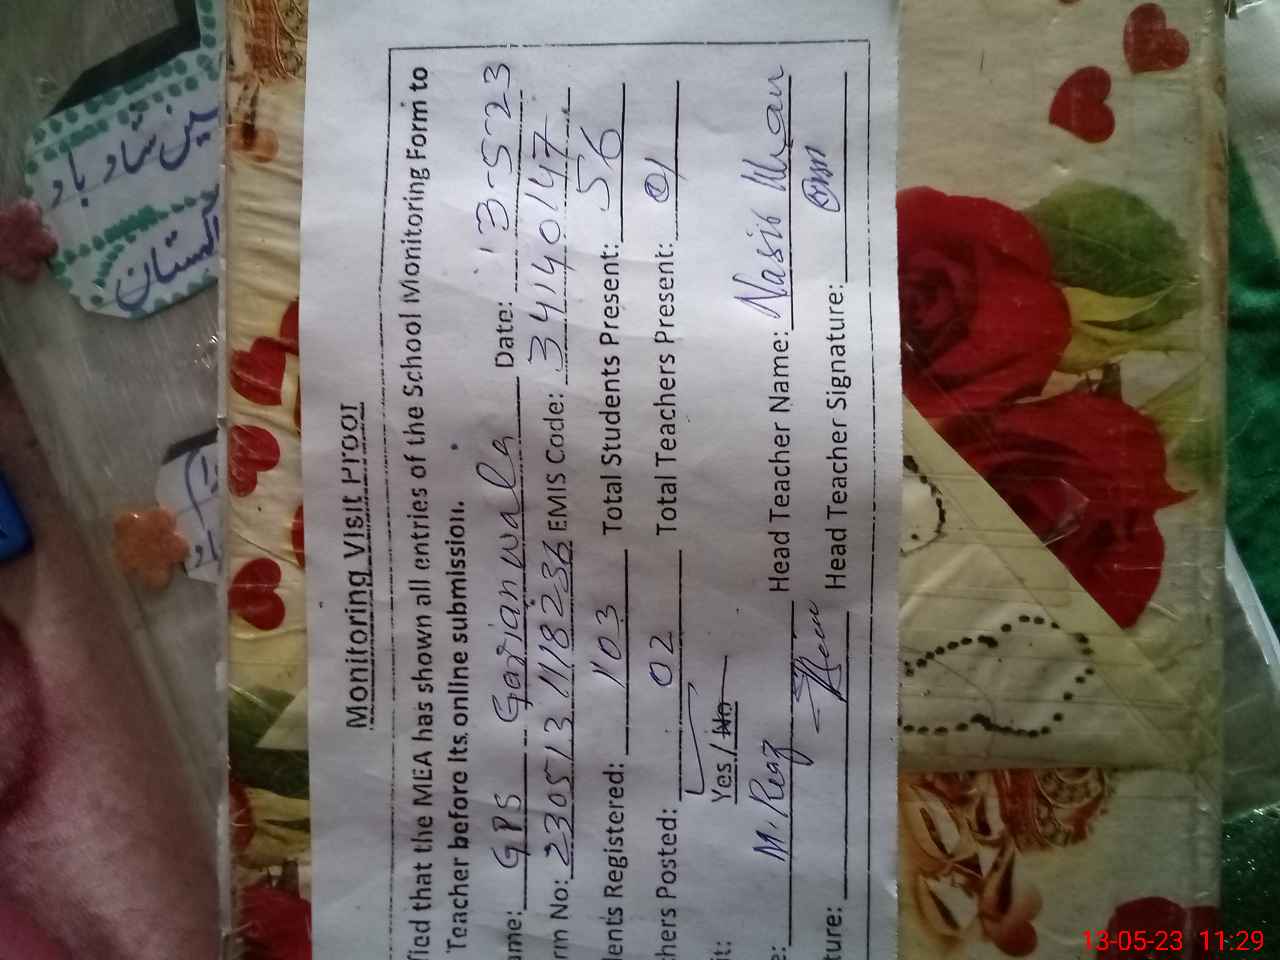 Monitoring Visit Proof
fied that the MEA has shown all entries of the School Monitoring Form to
Teacher before its online submission.
ame: GPS Garianwala Date: 13-5-23
rm No: 230513111823 EMIS Code: 34140147
ents Registered: 103 Total Students Present: 56
hers Posted: 02 Total Teachers Present: 01
it: Yes / No
e: M. Reaz Head Teacher Name: Nasib Khan
ture: Head Teacher Signature:
شاد باد
13-05-23 11:29